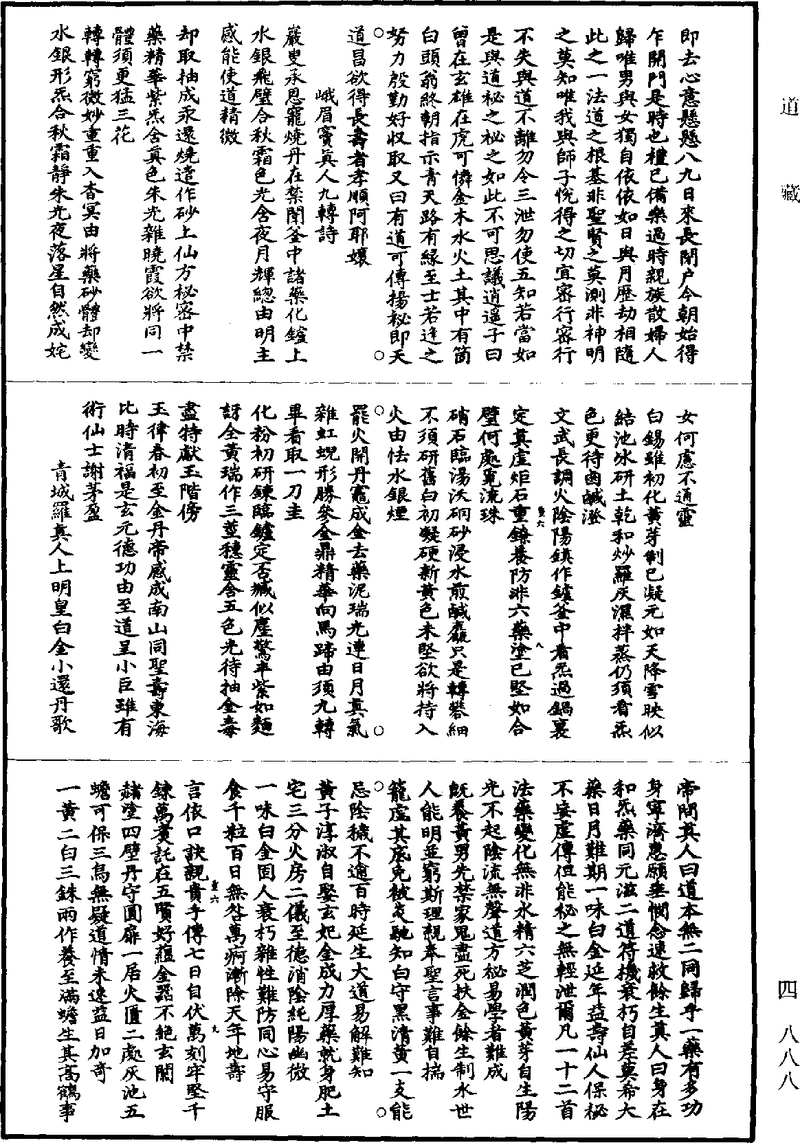 道藏
四 八八八
即去心意懸懸八九日來長閉户今朝始得
乍開門是時也檀已備樂過時親族散婦人
歸唯男與女獨自依依如日與月歷劫相隨
此之一法道之根基非聖賢之莫測非神明
之莫知唯我與師子悅得之切宜審行審行
不失與道不離勿令三泄勿使五知若當如
是與道祕之祕之如此不可思議逍遥子曰
曾在玄雄在虎可憐金木水火土其中有箇
白頭翁終朝指示青天路有緣至士若逢之
努力殷勤好収取又曰有道可傳揚祕即天
道昌欲得長壽者孝順阿耶孃
峨眉竇真人九轉詩
嚴叟承恩寵燒丹在禁闈釜中諸藥化鑪上
水銀飛璧合秋霜色光含夜月輝總由明主
感能使道精微
却取抽成汞還燒造作砂上仙方秘密中禁
藥精華紫炁含真色朱光雜曉霞欲將同一
體須更猛三花
轉轉窮微妙重重入杳冥由將藥砂體却變
水銀形炁合秋霜靜朱光夜落星自然成姹
女何慮不通靈
白錫雖初化黄芽制已凝元如天降雪映似
結池冰研土乾和炒羅灰濕拌蒸仍須看炁
色更待鹵鹹澄
文武長調火陰陽鎮作鑪釜中看炁過鍋裏
定真虛炬石重鎔養防非六藥塗已堅如合
璧何處覓流珠
硝石臨湯沃硇砂浸水煎鹹麤只是轉礬細
不須研舊白初凝硬新黄色未堅欲將持入
火由怯水銀煙
罷火開丹竈成金去藥泥瑞光連日月真氣
雜虹蜺形勝參金鼎精華向馬蹄由須九轉
畢看取一刀圭
化粉初研鍊臨鑪定否臧似塵驚率紫如麵
訝全黄瑞作三莖穗靈含五色光待抽金毒
盡特獻玉階傍
玉律春初至金丹帝感成南山同聖壽東海
比時清福是玄元德功由至道呈小臣雖有
術仙士謝茅盈
青城羅真人上明皇白金小還丹歌
帝問真人曰道本無二同歸乎一藥有多功
身寧濟惠願垂憫念速救餘生真人曰身在
和炁藥同元滋二道符機衰朽自差莫希大
藥日月難期一味白金延年益壽仙人保秘
不妄虛傳但能秘之無輕泄爾凡一十二首
法藥變化無非水精六芝潤色黄芽自生陽
光不起陰流無聲道方秘易學者難成
旣養黄男先禁家鬼盡死扶金餘生制水世
人能明並窮斯理親奉聖言事難自揣
籠虛其底免被支馳知白守黑清黄一支能
忌陰穢不逾百時延生大道易解難知
黄子淳淑自娶玄妃金成力厚藥就身肥土
宅三分火房二儀至德消陰純陽幽微
一味白金固人衰朽雜性難防同心易守服
食千粒百日無咎萬痾漸除天年地壽
言依口訣親貴手傳七日自伏萬刻牢堅千
鍊萬實託在五賢好緼金器不絶玄關
赭塗四壁丹守圓扉一居火匱二處灰池五
蟾可保三烏無疑道情未達益日加奇
一黄二白三銖兩作養至滿蟾生其高鶴事